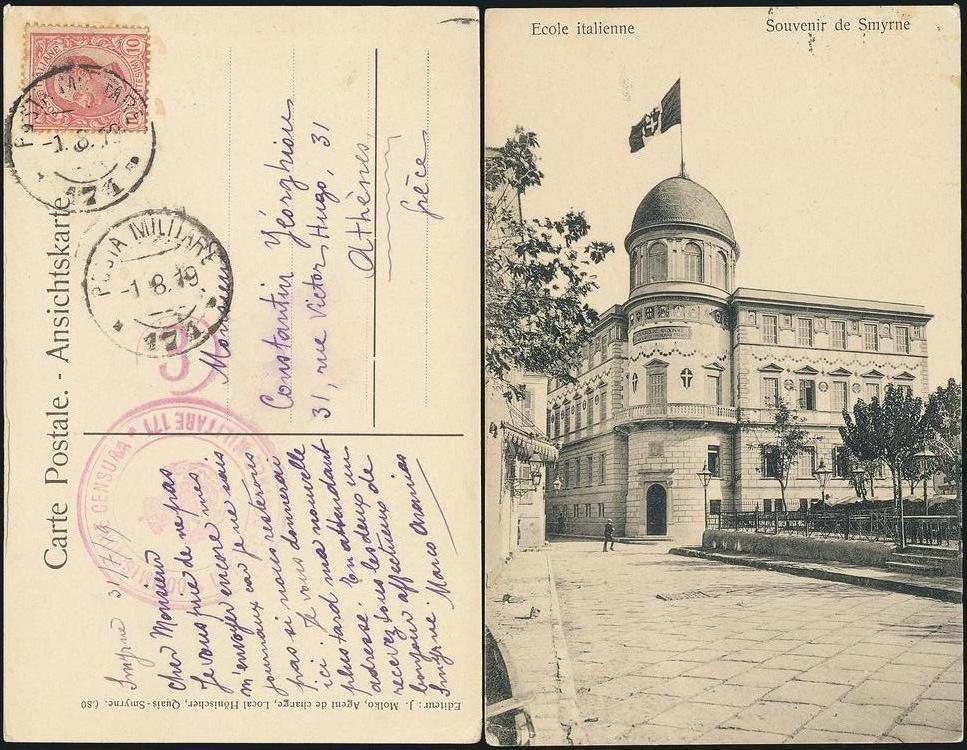 Carte Postale. - Ansichtskarte
POSTA MILITARE
-1.8.19
171
POSTA MILITARE
-1.8.19
171
10
3
CENSURA
MILITARE 171
Monsieur
Constantin Yéorghiou
31, rue Victor Hugo, 31
Athènes
Grèce
Smyrne 31/7/19
Cher Monsieur
Je vous prie de ne pas
m'envoyer encore mes
journaux car je ne sais
pas si nous resterons
ici. Je vous donnerai
plus tard ma nouvelle
adresse. En attendant
recevez tous les deux un
bonjour affectueux de
Smyrne Marco
Editeur: J. Molko, Agent de change, Local Hönischer, Quais-Smyrne. 680
Ecole italienne
Souvenir de Smyrne